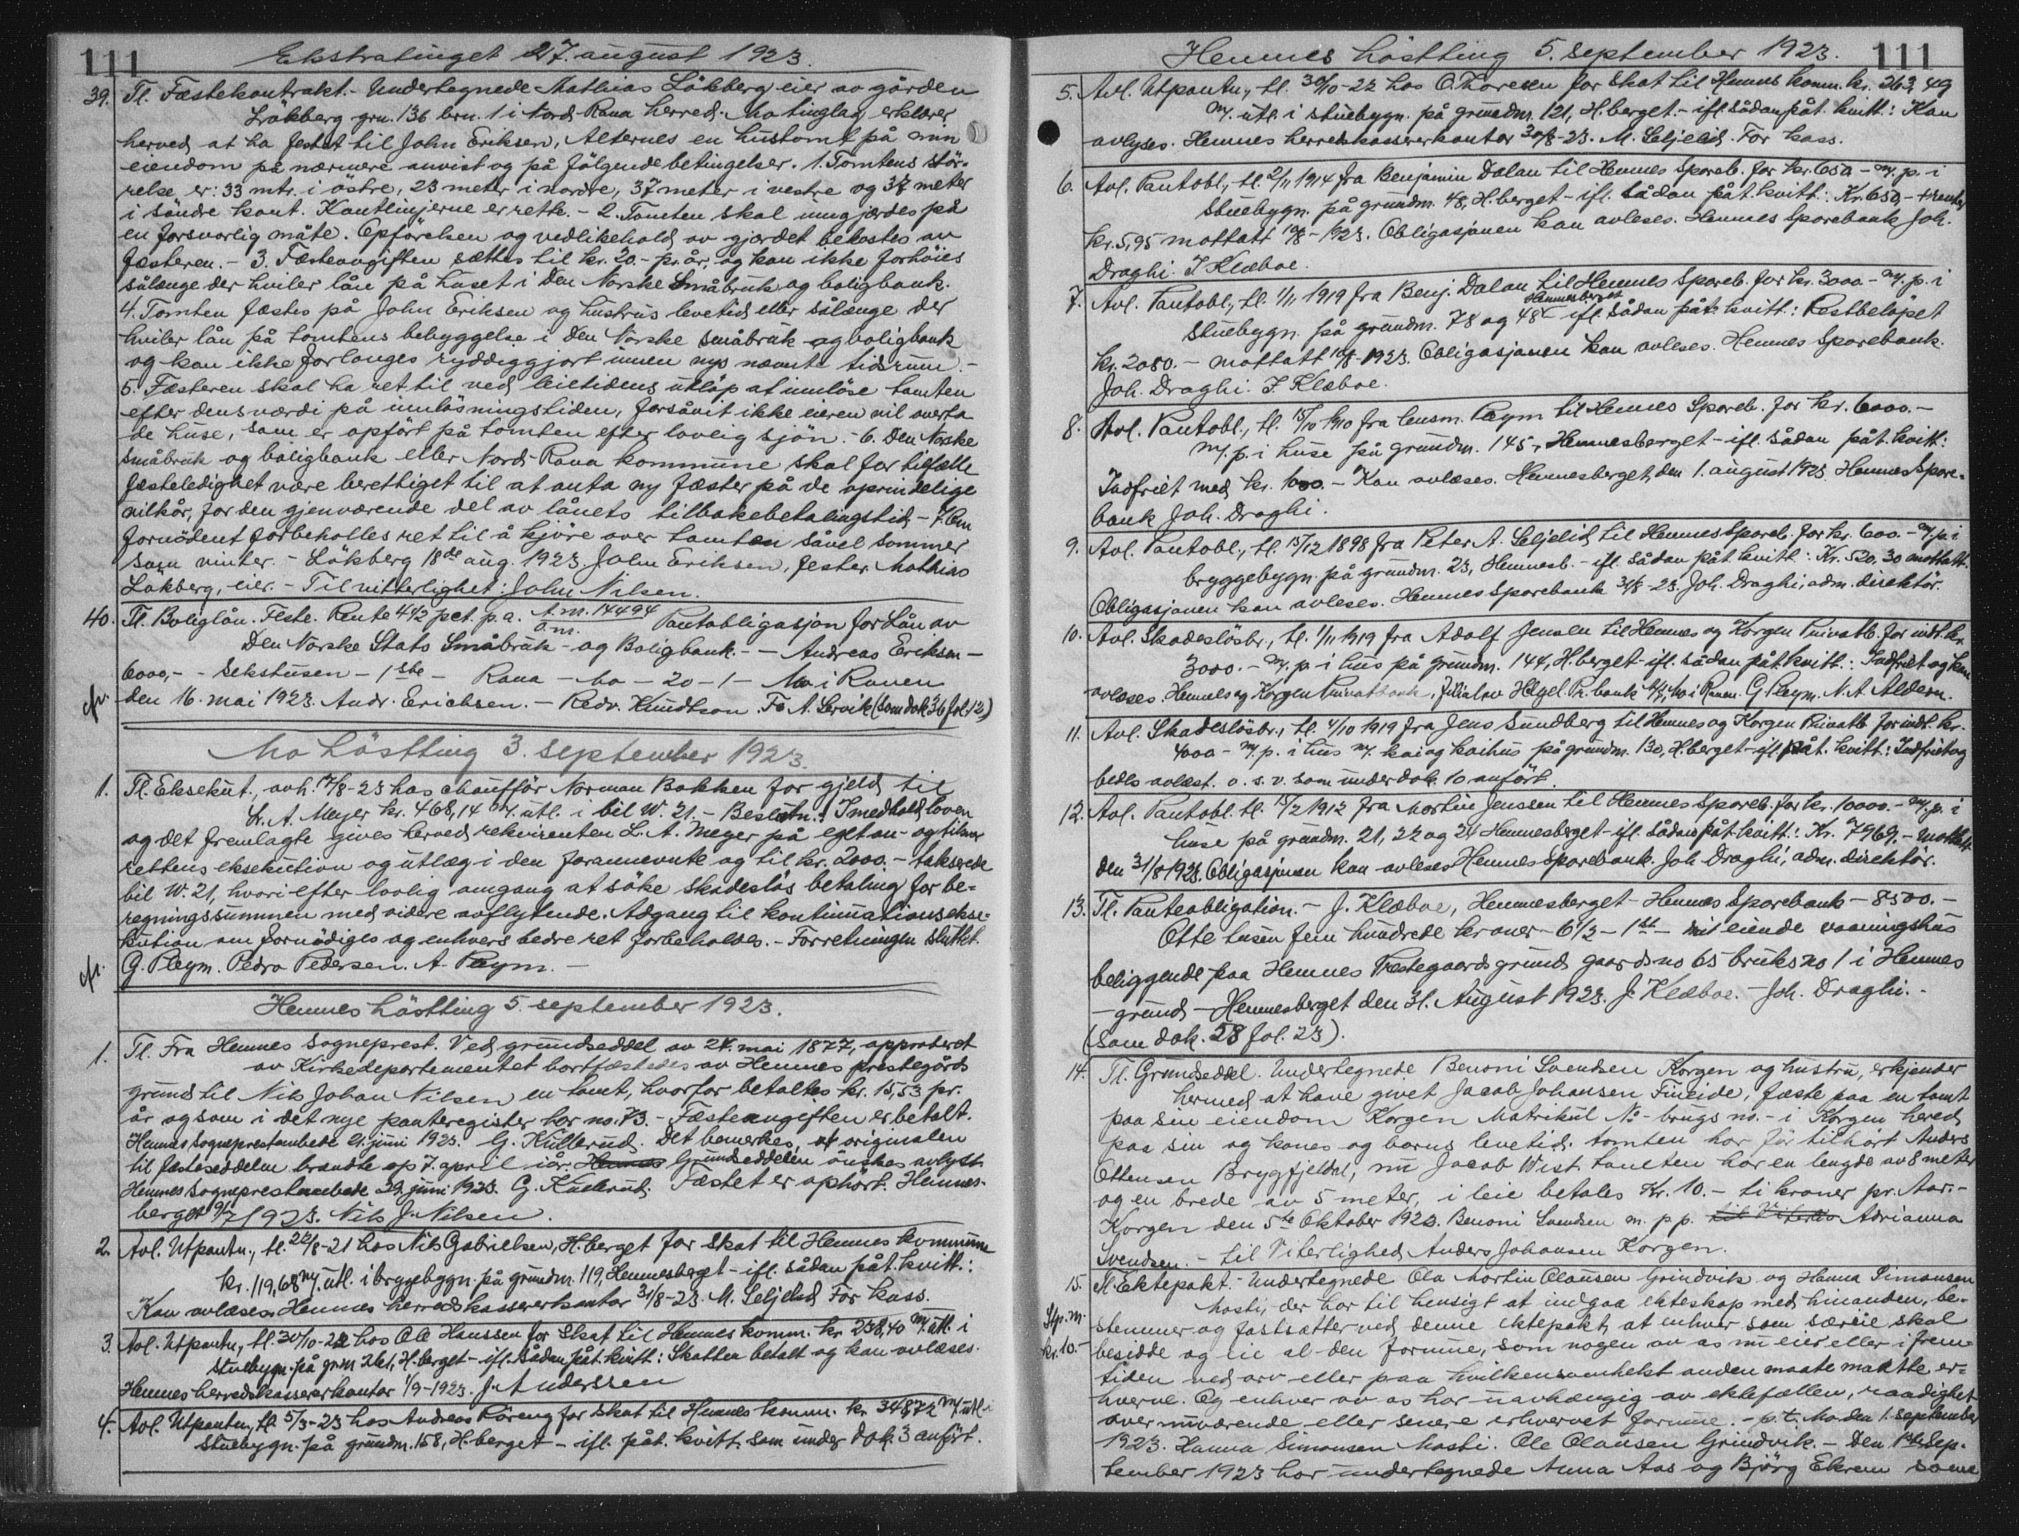 111
Ekstratinget 27. august 1923.
39. Tl. Fæstekontrakt. - Undertegnede Mathias Lökberg eier av gården
Lökberg grn. 136 brn. 1 i Nord-Rana herred. Mo tinglag erklærer
herved at ha festet til John Eriksen, Alternes en hustomt på min
eiendom på nærmere anvist og på følgende betingelser. 1. Tomtens stör-
relse er: 33 mtr. i östre, 23 meter i nordre, 37 meter i vestre og 37 meter
i söndre kant. Kantlinjerne er rette. - 2. Tomten skal inngjærdes på
en forsvarlig måte. Opförelsen og vedlikehold av gjærdet bekostes av
fæsteren. - 3. Fæsteavgiften sættes til kr. 20. - pr. år, og kan ikke forhöies
sålænge der hviler lån på huset i Den Norske Småbruk og boligbank.
4. Tomten fæstes på John Eriksen og hustrus levetid eller sålænge der
hviler lån på tomtens bebyggelse i Den Norske småbruk og boligbank
og kan ikke forlanges ryddiggjort innen nys nævnte tidsrum. -
5. Fæsteren skal ha ret til ved leietidens utlöp at innlöse tomten
efter dens værdi på innlösningstiden, forsåvit ikke eieren vil overta
de huse, som er opfört på tomten efter lovlig skjön. - 6. Den Norske
småbruk og boligbank eller Nord-Rana kommune skal for tilfælle
fæsteledighet være berettiget til at anta ny fæster på de oprindelige
vilkår, for den gjenværende del av lånets tilbakebetalingstid - 7. Om
fornödent forbeholles ret til å kjöre over tomten såvel sommer
som vinter. - Lökberg 18de aug. 1923. John Eriksen, fester. Mathias
Lökberg, eier. - Til vitterlighet: John Nilsen.
40. Tl. Boliglån. Feste. Rente 4 1/2 pct. p.a. A.m. 14494 Pantobligasjon for Lån av
a.m.
Den Norske Stats Småbruk - og Boligbank. - - Andreas Eriksen -
6000,- - Sekstusen - 1ste - Rana - - 20 - 1 - Mo i Ranen
den 16. mai 1923. Andr. Erichsen. - Redv. Knudtson. Fo A. Lervik (som dok 36 fol. 12)
Mo hösting 3. september 1923.
1. Tl. Eksekut., avh. 17/8-23 hos chauffør Norman Bakken for gjeld til
L. A. Meyer kr. 468,14 m/. utl. i bil W. 21. - Beslutn.: I medhold loven
og det fremlagte gives herved rekvirenten L. A. Meyer på eget an- og tilsvar
rettens eksekution og utlæg i den forannevnte og til kr. 2000. - takserede
bil W. 21, hvori efter lovlig omgang at söke skadeslös betaling for be-
regningssummen med videre avflytende. Adgang til kontinuationsekse-
kution om fornödiges og enhvers bedre ret forbeholdes. - Forretningen sluttet.
G. Pleym. Pedro Pedersen. A. Pleym. -
Hemnes hösting 5. september 1923.
1. Tl. Fra Hemnes Sogneprest. Ved grundseddel av 24. mai 1877, approberet
av Kirkedepartementet bortfæstedes av Hemnes prestegårds
grund til Nils Johan Nilsen en tomt, hvorfor betaltes kr. 15,53 pr.
år og som i det nye panteregister har no. 73. - Fæsteavgiften er betalt.
Hemnes Sogneprestembede 21. juni 1923. G. Kullerud. Det bemerkes, at originalen
til fæsteseddelen brændte op 7. april iår. Grundseddelen önskes avlyst.
Hemnes Sogneprestembede 29. juni 1923. G. Kullerud. Fæstet er ophört. Hemnes-
berget 9/7 1923. Nils J. Nilsen.
2. Avl. Utpantn., tl. 22/8-21 hos Nils Gabrielsen, H.berget for skat til Hemnes kommune
kr. 119,68 m/. utl. i bryggebygn. på grundnr. 119, Hemnesberget - ifl. sådan påt. kvitt.:
Kan avlæses. Hemnes herredskassererkontor 31/8-23. M. Seljelid For kass.
3. Avl. Utpantn., tl. 30/10-22 hos Ole Hanssen for Skat til Hemnes komm. kr. 238,40 m/. utl. i
stuebygn. på grnr. 261, H.berget - ifl. sådan påt. kvitt.: Skatten betalt og kan avlæses.
Hemnes herredskassererkontor 1/9-1923. J. Anderssen
4. Avl. Utpantn., tl. 5/3-23 hos Andreas Röreng for skat til Hemnes komm. kr. 348,72 m/. utl. i
stuebygn. på grundnr. 158, H.berget - ifl. påt. kvitt. som under dok. 3 anfört.
Hemnes hösting 5. september 1923.
111
5. Avl. Utpantn., tl. 30/10-22 hos O. Thoresen for skat til Hemnes komm. kr. 263,49
m/. utl. i stuebygn. på grundnr. 121, H.berget - ifl. sådan påt. kvitt.: Kan
avlyses. Hemnes herredskassererkontor 30/8-23. M. Seljelid. For kass.
6. Avl. Pantobl., tl. 2/11 1914 fra Benjamin Dalan til Hemnes Spareb. for kr. 650 - m/. p. i
stuebygn. på grundnr. 48, H.berget - ifl. sådan påt. kvitt.: Kr. 650,- + renter
kr. 5,95 mottatt 10/8-1923. Obligasjonen kan avleses. Hemnes Sparebank Joh.
Draghi. J Klæboe.
7. Avl. Pantobl., tl. 1/11 1919 fra Benj. Dalan til Hemnes Spareb. for kr. 3000 - m/. p. i
stuebygn. på grundnr. 78 og 48 Hemnesberget - ifl. sådan påt. kvitt.: Restbelöpet
kr. 2080. - mottatt 10/8-1923. Obligasjonen kan avleses. Hemnes Sparebank.
Joh. Draghi. J Klæboe.
8. Avl. Pantobl., tl. 15/10 1910 fra lensm. Pleym til Hemnes Spareb. for kr. 6000. -
m/. p. i huse på grundnr. 145, Hemnesberget - ifl. sådan påt. kvitt.:
Indfriet med kr. 1000. - Kan avlæses. Hemnesberget, den 1. august 1923 Hemnes Spare-
bank Joh. Draghi.
9. Avl. Pantobl., tl. 15/12 1898 fra Peter A. Seljelid til Hemnes Spareb. for kr. 600. - m/. p. i
bryggebygn. på grundnr. 23, Hemnesb. - ifl. sådan påt. kvitt.: Kr. 520,30 mottatt.
Obligasjonen kan avleses. Hemnes Sparebank 31/8-23. Joh. Draghi, adm. direktör.
10. Avl. Skadeslösbr., tl. 1/11 1919 fra Adolf Jensen til Hemnes og Korgen Privatb. for indt. kr.
3000. - m/. p. i hus på grundnr. 144, H.berget - ifl. sådan påt. kvitt.: Indfriet og kan
avleses. Hemnes og Korgen Privatbank, filial av Helgel. Pr. bank Mo i Ranen. G. Pleym. N. A. Alderen.
11. Avl. Skadeslösbr., tl. 4/10 1919 fra Jens Sundberg til Hemnes og Korgen Privatb. for indt. kr.
4000 - m/. p. i hus m/. kai og kaihus på grundnr. 130, H.berget - ifl. påt. kvitt.: Indfriet og
bedes avlæst. o. s. v. som under dok. 10 anfört.
12. Avl. Pantobl. tl. 15/2 1912 fra Martin Jenssen til Hemnes Spareb. for kr. 10000. - m/. p. i
huse på grundnr. 21, 22 og 24 Hemnesberget - ifl. sådan påt. kvitt.: Kr. 7969,- mottatt
den 31/8 1923. Obligasjonen kan avleses Hemnes Sparebank. Joh. Draghi, adm. direktör.
13. Tl. Panteobligation. - J. Klæboe, Hemnesberget - Hemnes Sparebank - 8500. -
Otte tusen fem hundrede kroner - 6 1/2 - 1ste - mit eiende vaaningshus
beliggende paa Hemnes Præstegaards grund gaardsno 65 bruksno 1 i Hemnes
- grund - Hemnesberget den 31. August 1923. J. Klæboe. - Joh. Draghi. -
(Som dok. 58 fol. 23).
14. Tl. Grundseddel. Undertegnede Benoni Svendsen Korgen og hustru, erkjender
hermed at have givet Jacob Johansen Fineide, fæste paa en tomt
paa sin eiendom Korgen Matrikul No - brugs no. - i Korgen herred
paa sin og kones og barns levetid. tomten har för tilhört Anders
Ottensen Brygfjeldal, nu Jacob West tomten har en lengde av 8 meter
og en brede av 5 meter, i leie betales Kr. 10. - ti kroner pr. Aar. -
Korgen den 5te Oktober 1923. Benoni Svendsen m. p. p. Adrianna
Svendsen. - til Viterlighed Anders Johansen Korgen.
15. Tl. Ektepakt. - Undertegnede Ola Martin Olausen Grindvik og Hanna Simonsen
Stp. m. Mosti, der har til hensigt at indgaa ekteskap med hinanden, be-
kr. 10. - stemmer og fastsætter ved denne ektepakt, at enhver som særeie skal
besidde og eie al den formue, som nogen av os nu eier eller i frem-
tiden ved arv eller paa hvilkensomhelst anden maate maatte er-
hverve. Og enhver av os har uavhængig av ektefællen, raadighet
over nuværende eller senere erhvervet formue. - p. t. Mo den 1. september
1923. Hanna Simonsen Mosti. Ole Olausen Grindvik. - Den 1ste Sep-
tember 1923 har undertegnede Anna Aas og Björg Ekrem some